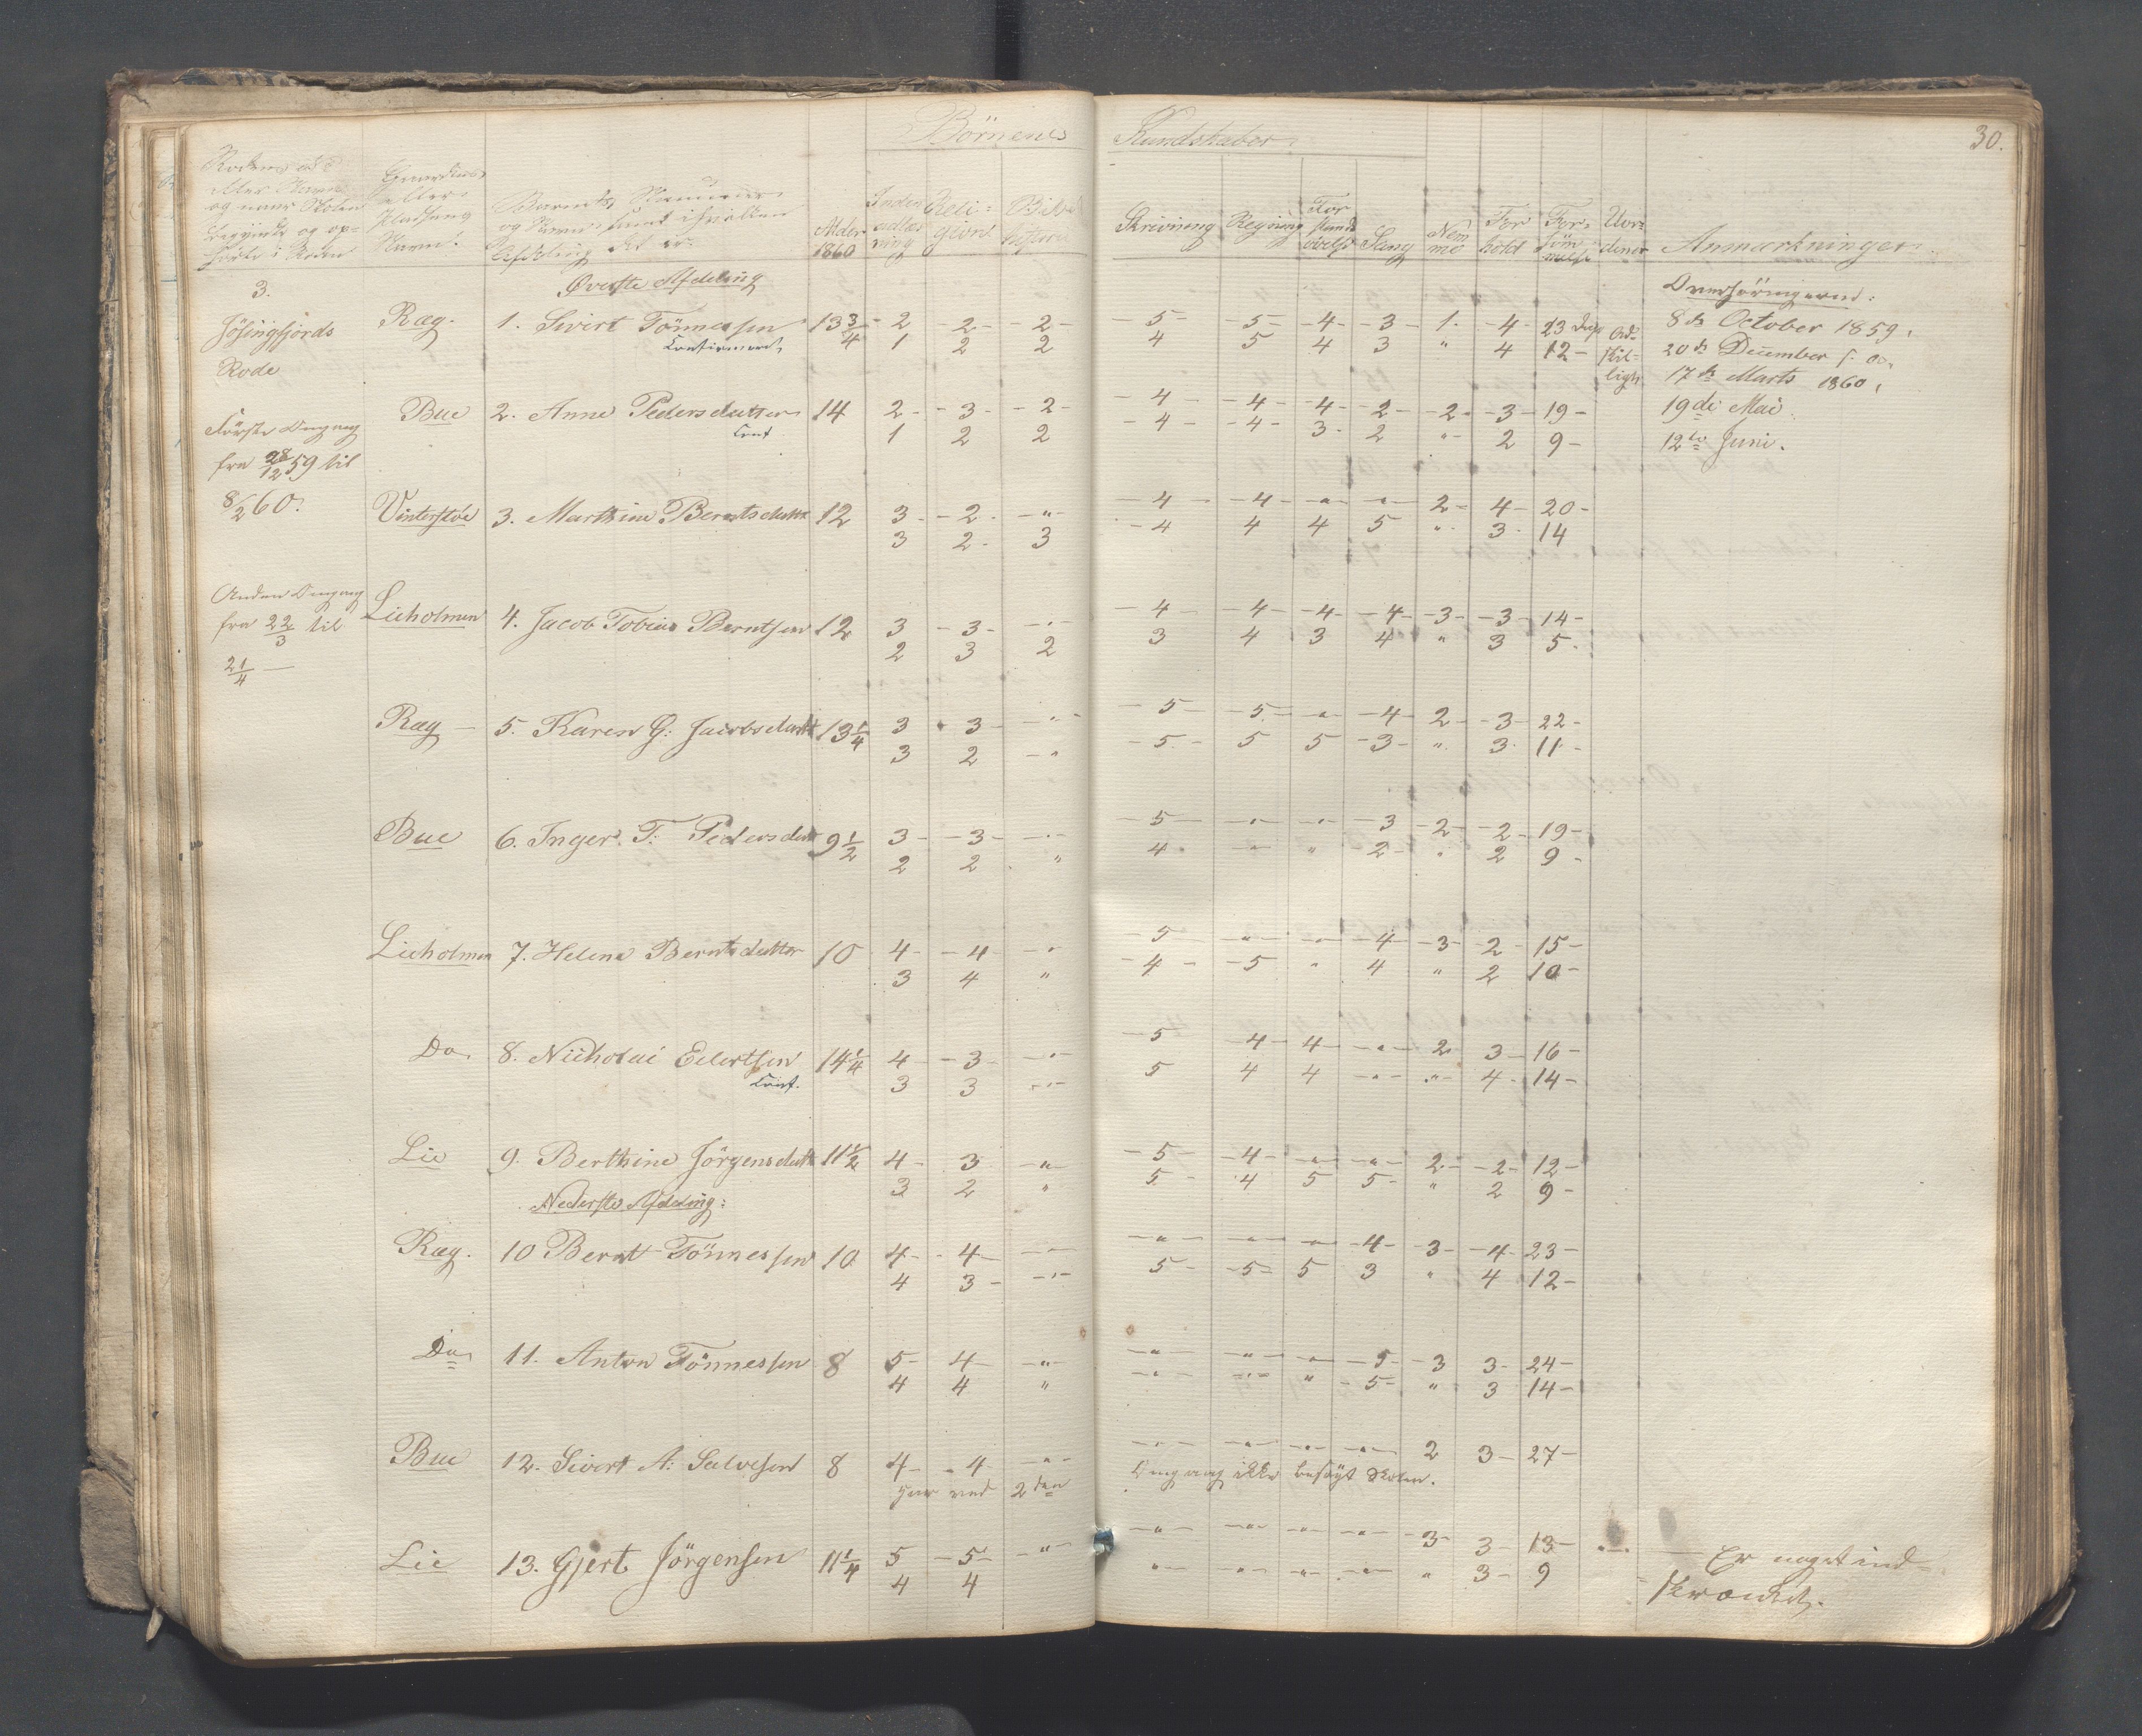 30.
Börnenes Kundskaber.
Gaardens
eller
Navn.
Barnets
og Navn samt i hvilken
Afdeling det er.
Alder 1860
Inden-
adlæs
ning
Reli=
gion
Skrivning
Regning
For
stands
övelse
Sang
Nem
me
For
hold
For=
söm
melse
Anmærkninger.
3.
Jösingfjords
Rode
Förste Omgang
fra 28/12 59 til
8/2 60.
Anden Omgang
fra 22/3 til
21/4 —
Øverste Afdeling
Overhöringerne:
Ræg. 1. Sivert Tönnessen 13 3/4 - 2 2 - - 2 - - 5 - - 5 - - 4 - - 3 - 1. - 4 - 23 Dage Ad= 8de October 1859.
Confirmeret 1 2 2 4 5 4 3 " 4 12 - skil= 20de December s. A.
ligh. 17de Marts 1860.
Bue 2. Anne Pedersdatter 14 2 - - 3 - - 2 - - 4 - - 4 - - 4 - - 2 - - 2 - - 3 - 19 - 19de Mai
Conf. 1 2 2 - 4 - - 4 - 3 - 2 " - 2 9 - 12te Juni.
Vinterstöe 3. Marthine Berntsdatt 12 3 - - 2 - - " - - 4 - - 4 - - " - - " - 2 - 4 - 20 -
3 2 - 3 - 4 4 4 5 " 3 - 14
Lieholmen 4. Jacob Tobias Berntsen 12 3 - 3 - - " - - 4 - - 4 - - 4 - - 4 - - 3 - - 3 - 14 -
2 3 2 3 4 3 4 " 3 5 -
Ræg - 5. Karen G: Jacobsdatt 13 1/4 3 3 - - " - - 5 - - 5 - - " - - 4 - 2 - - 3 - 22 -
3 2 - " - 5 - 5 5 - 3 - " 3 - 11 -
Bue 6. Inger T: Pedersdatt 9 1/2 3 - - 3 - - " - - 5 - - " - - " - - 3 - 2 - - 2 - 19 -
2 2 " 4 - - " - " - 2 - " 2 9 -
Lieholmen 7. Helene Berntsdatter 10 4 - - 4 - - " - 5 - " - - " - - 4 - - 3 - - 2 - 15 -
3 4 " - 4 - - 5 " 4 " 2 10 -
Do. 8. Nicholai Eilertsen 14 1/4 4 - - 3 - - " - - 5 - 4 - 4 - - " - 2 3 - 16 -
Conf. 3 3 - " - 5 4 4 - " - - " - 4 - 14 -
Lie 9. Berthine Jörgensdatt 11 1/2 4 - 3 - " - - 5 - - 4 - - " - - " - 2 - - 2 - 12 -
3 2 " 5 - 4 5 5 - " 2 9 -
Nederste Afdeling:
Ræg. 10 Bernt Tönnessen 10 4 - - 4 - - " - - " - - " - - " - - 4 - - 3 - - 4 - 23 -
4 3 - - " - 5 - - 5 - 5 3 " 4 12 -
Do. 11. Anton Tönnessen 8 5 - 4 - - " - - " - - " - - " - - 5 - - 3 3 - 24 -
4 4 " - " - - " - " - 5 - " 3 14 -
Bue 12. Sivert A: Salvesen 8 4 - - 4 - " - - " - - " - - " - - " - 2 3 - 27 -
har ved 2den Omgang ikke besögt Skolen.
Lie 13. Gjert Jörgensen 11 1/4 5 - 5 - - " - - " - - " - - " - - " - - 3 - 3 - 13 - - " - - Er noget ind-
4 4 " - - " - - " - - " - " 3 - 9 skrænket.